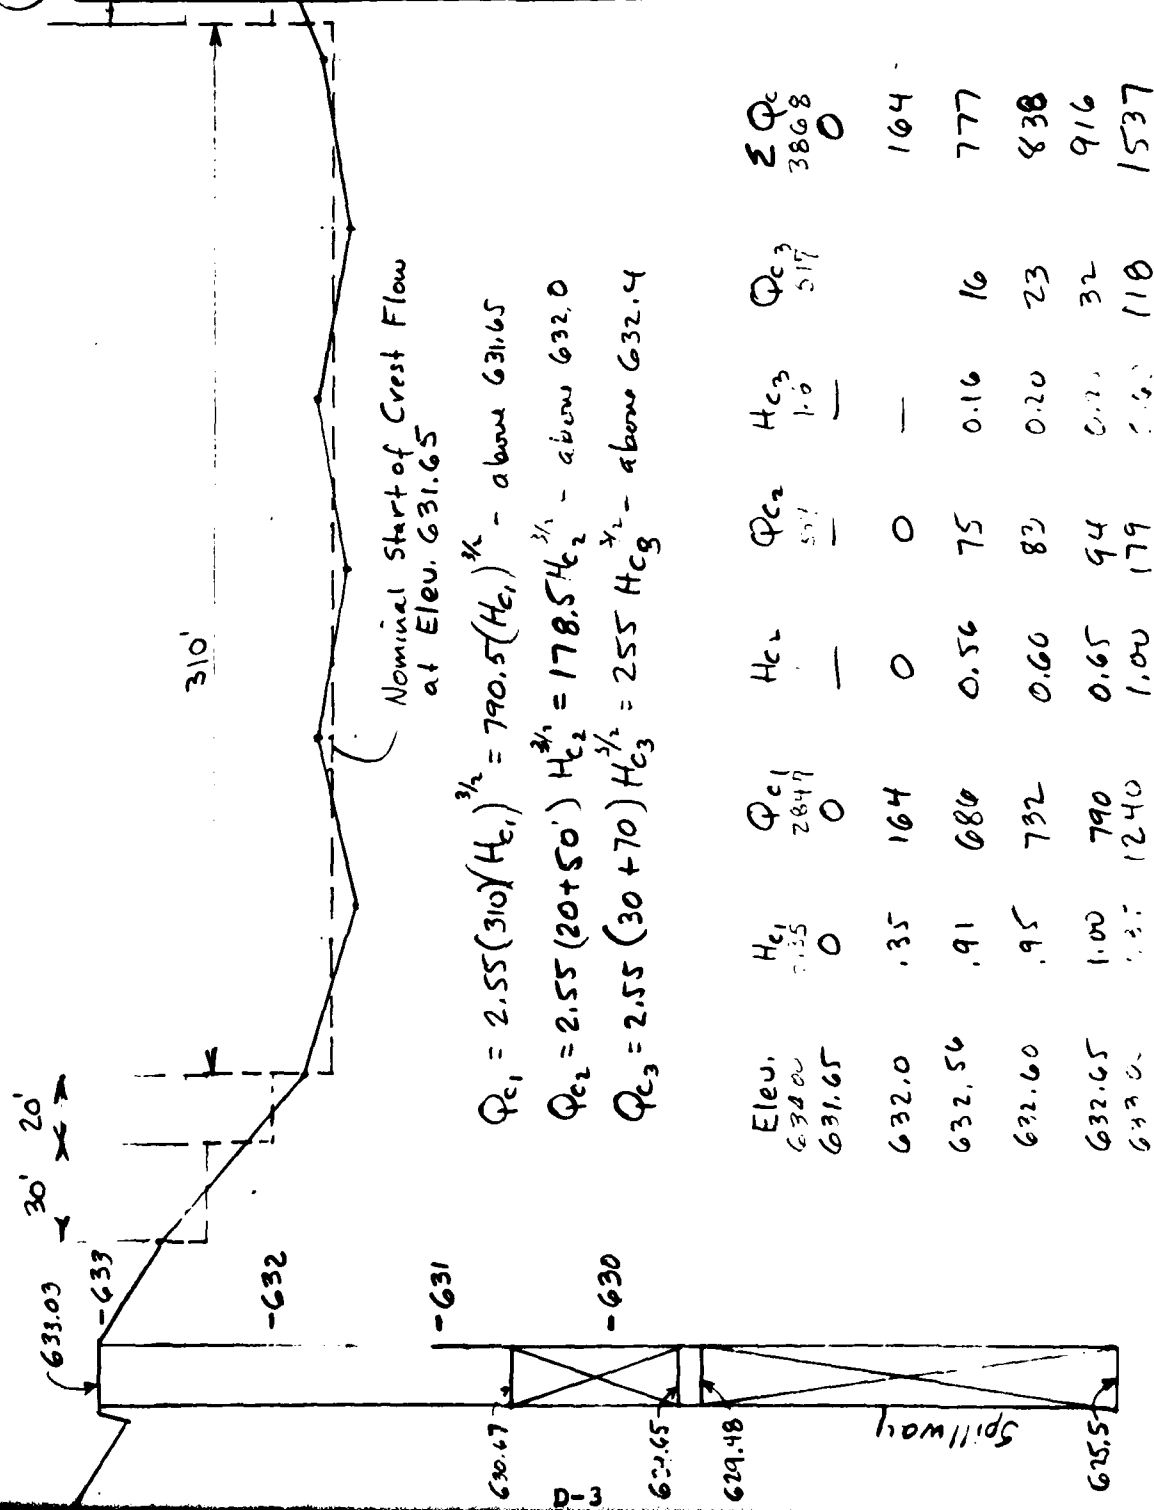 633.03
30'
20'
310'
-633
-632
-631
-630
630.67
629.48
625.5
Spillway
Nominal Start of Crest Flow
at Elev. 631.65
Qc1 = 2.55(310)(Hc1)^3/2 = 790.5(Hc1)^3/2 - above 631.65
Qc2 = 2.55(20+50') Hc2^3/2 = 178.5 Hc2^3/2 - above 632.0
Qc3 = 2.55(30+70) Hc3^3/2 = 255 Hc3^3/2 - above 632.4
Elev. Hc1 Qc1 Hc2 Qc2 Hc3 Qc3 Σ Qc
2847 1.6 517 3868
631.65 0 0 — — — 0
632.0 .35 164 0 0 — 164
632.56 .91 686 0.56 75 0.16 16 777
632.60 .95 732 0.60 83 0.20 23 838
632.65 1.00 790 0.65 94 32 916
1240 1.00 179 118 1537
D-3